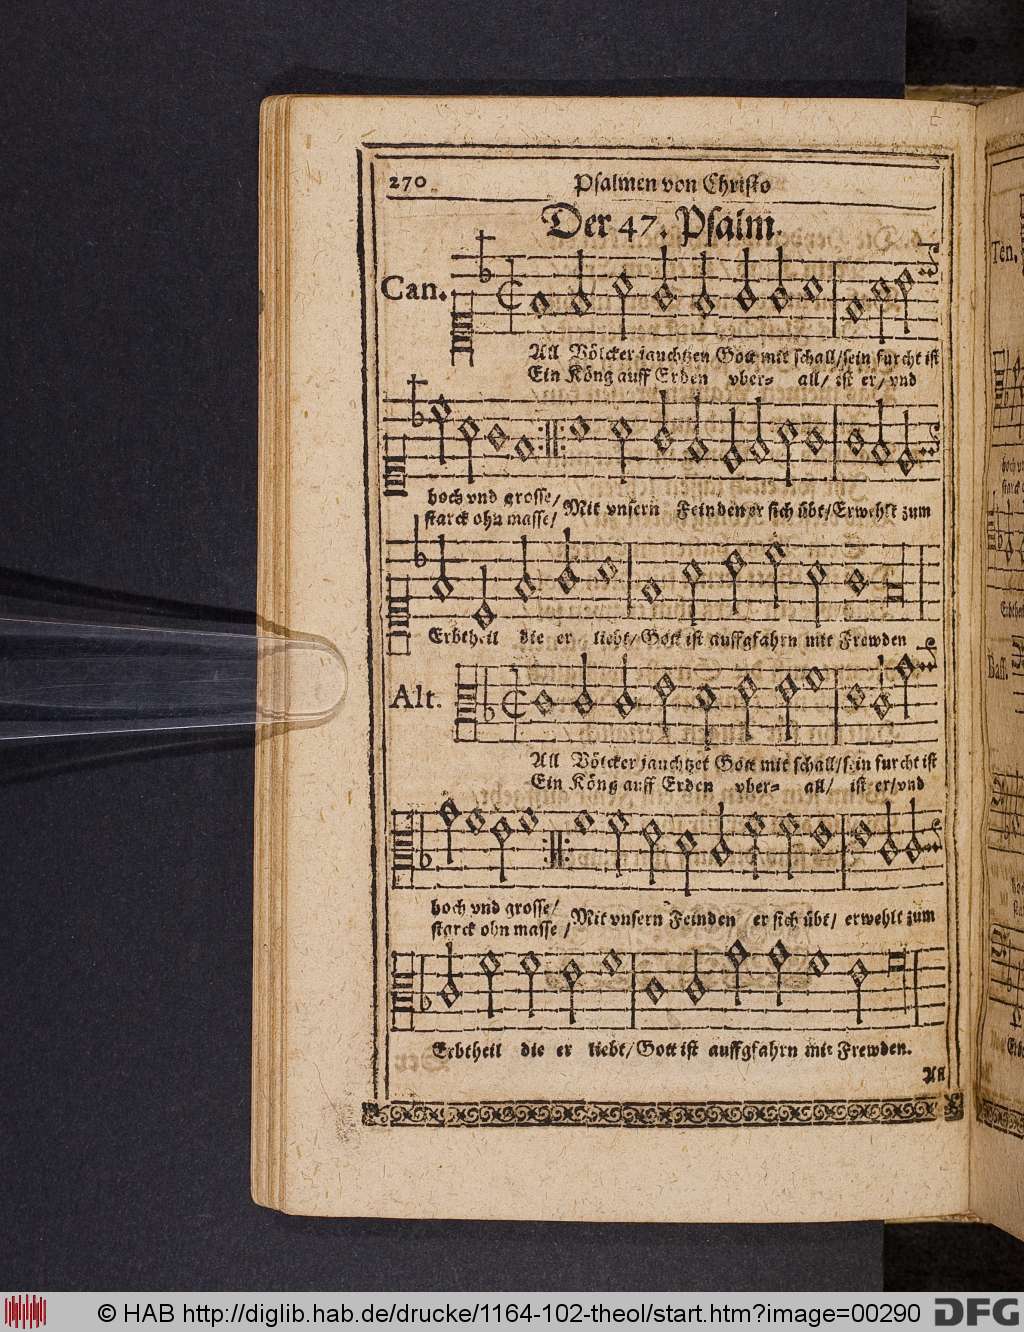 270 Psalmen von Christo
Der 47. Psalm.
Can.
All Völcker jauchtzen Gott mit schall/sein furcht ist
Ein Köng auff Erden vber- all/ ist er/ vnd
hoch vnd grosse/
starck ohn masse/ Mit vnsern Feinden er sich übt/Erwehlt zum
Erbtheil die er liebt/Gott ist auffgfahrn mit Frewden
Alt.
All Völcker jauchtzet Gott mit schall/sein furcht ist
Ein Köng auff Erden vber- all/ ist er/vnd
hoch vnd grosse/
starck ohn masse/ Mit vnsern Feinden er sich übt/ erwehlt zum
Erbtheil die er liebt/Gott ist auffgfahrn mit Frewden.
All
Ten.
Bass.
© HAB http://diglib.hab.de/drucke/1164-102-theol/start.htm?image=00290 DFG